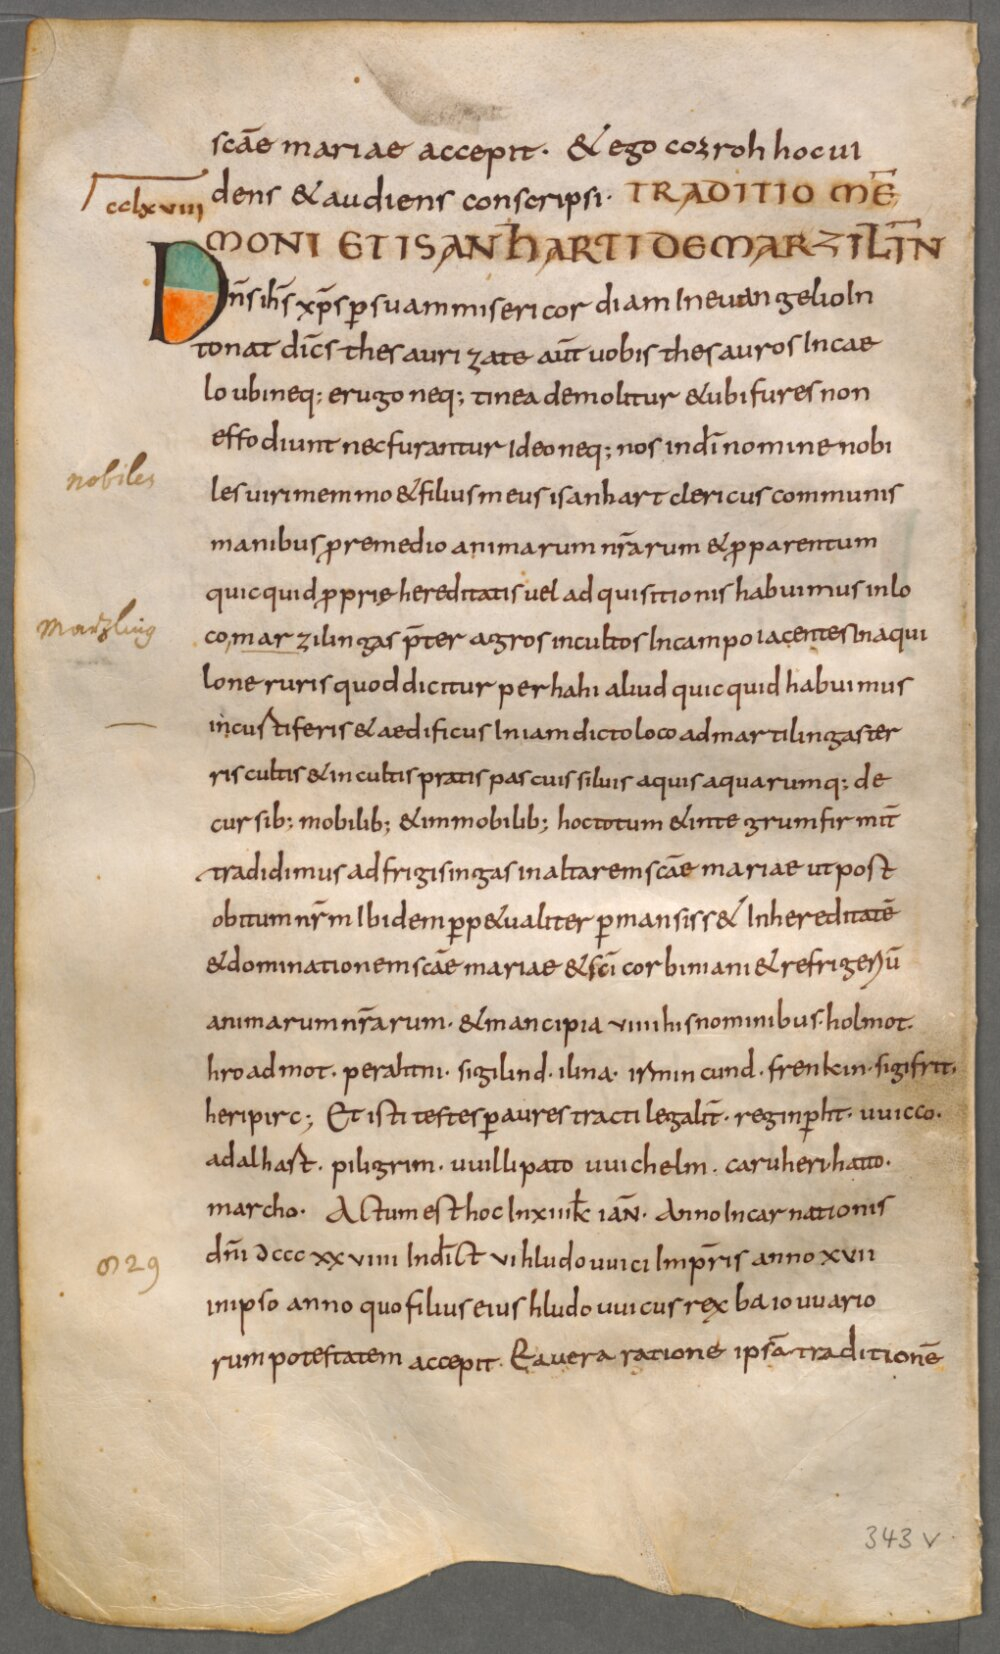 scāe mariae accepit. & ego cozroh hoc ui
cclxviii
dens & audiens conscripsi. TRADITIO MĒ
MONI ET ISANHARTI DE MARZILĪN
Dn̄s ih̄s xp̄s p suam misericordiam In euangelio In
tonat dic̄s thesaurizate aūt uobis thesauros In cae
lo ubi neq; erugo neq; tinea demolitur & ubi fures non
effodiunt nec furantur Ideo neq; nos in dī nomine nobi
nobiles
les uiri memmo & filius meus isanhart clericus communis
manibus p remedio animarum nr̄arum & p parentum
quicquid p prię hereditatis uel adquisitionis habuimus in lo
Marzling
co, marzilingas p̄ter agros incultos In campo iacentes In aqui
lone ruris quod dicitur perhahi aliud quicquid habuimus
in custiferis & aedificiis In iam dicto loco ad martilingas ter
ris cultis & incultis pratis pascuis siluis aquis aquarumq; de
cursib; mobilib; & immobilib; hoc totum & integrum firmit̄
tradidimus ad frigisingas in altarem scāe mariae ut post
obitum nr̄m Ibidem pp&ualiter pmansiss& In hereditatē
& dominationem scāe mariae & scī corbiniani & refrigeriū
animarum nr̄arum. & mancipia viiii his nominibus. holmot.
hroadmot. perahtni. sigilind. ilina. irmincund. frenkin. sigifrit.
heripirc; Et isti testes p aures tracti legalit̄. reginpht. uuicco.
adalhast. piligrim. uuillipato uuichelm. caruheri. hatto.
marcho. Actum est hoc In xiiii k̄ iaN̄. Anno Incarnationis
829
dn̄i dcccxxviiii Indic̄t vi hludouuici Imp̄ris anno xvii
in ipso anno quo filius eius hludouuicus rex baiouuario
rum potestatem accepit. Ea uera ratione ipsā traditionē
343 v